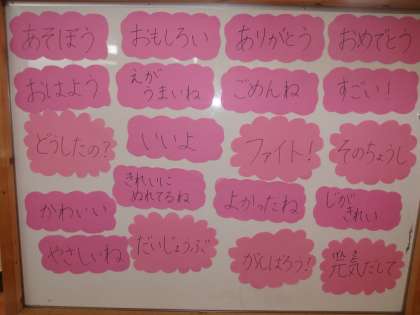 あそぼう
おもしろい
ありがとう
おめでとう
おはよう
えが
うまいね
ごめんね
すごい!
どうしたの?
いいよ
ファイト!
そのちょうし
きれいに
ぬれてるね
かわいい
よかったね
じが
きれい
やさしいね
だいじょうぶ
がんばろう!
元気だして